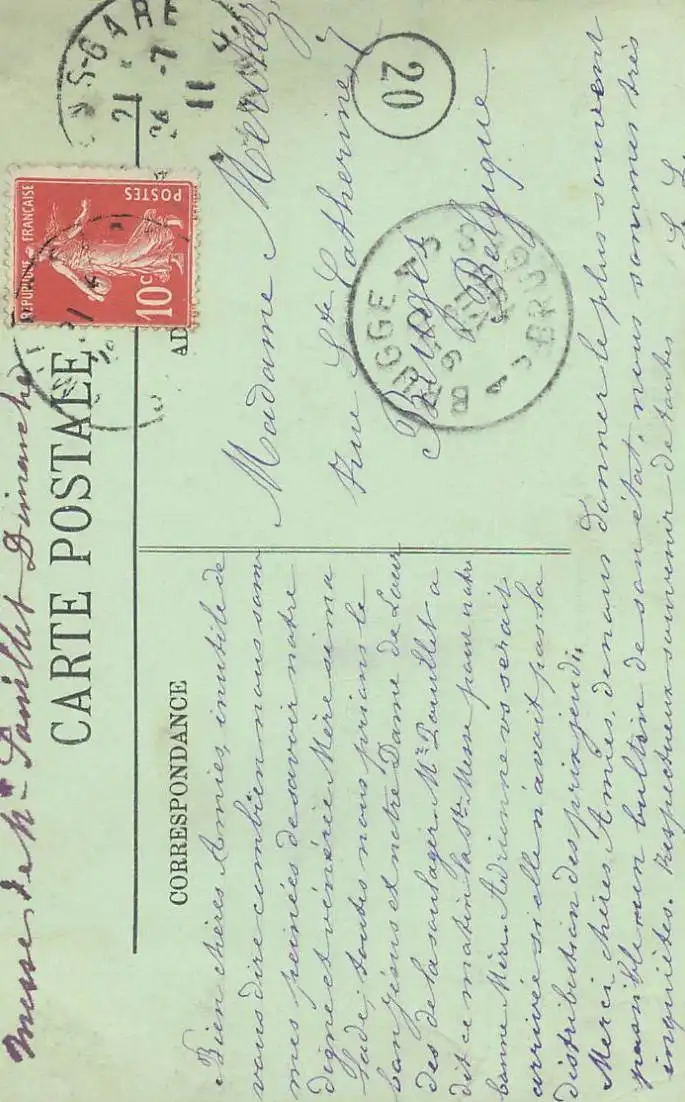 Messe de Mr Pouillet Dimanche
CARTE POSTALE
CORRESPONDANCE
AD
RÉPUBLIQUE FRANÇAISE
POSTES
10c
GARE
21
26 -7
11
20
BRUGGE
BRUGES
Madame
rue Ste Catherine, 7
Bruges
Belgique.
Bien chères Amies, inutile de
vous dire combien nous som
mes peinées de savoir notre
digne et vénérée Mère si ma
lade, toutes nous prions le
bon Jésus et notre Dame de Lour
des de la soulager. Mr Pouillet a
dit ce matin la Ste Messe pour notre
bonne Mère. Adrienne vs serait
arrivée si elle n'avait pas la
distribution des prix jeudi.
Merci, chères Amies, de nous donner le plus souvent
possible un bulton de son état, nous sommes très
inquiètes. Respectueux souvenir de toutes